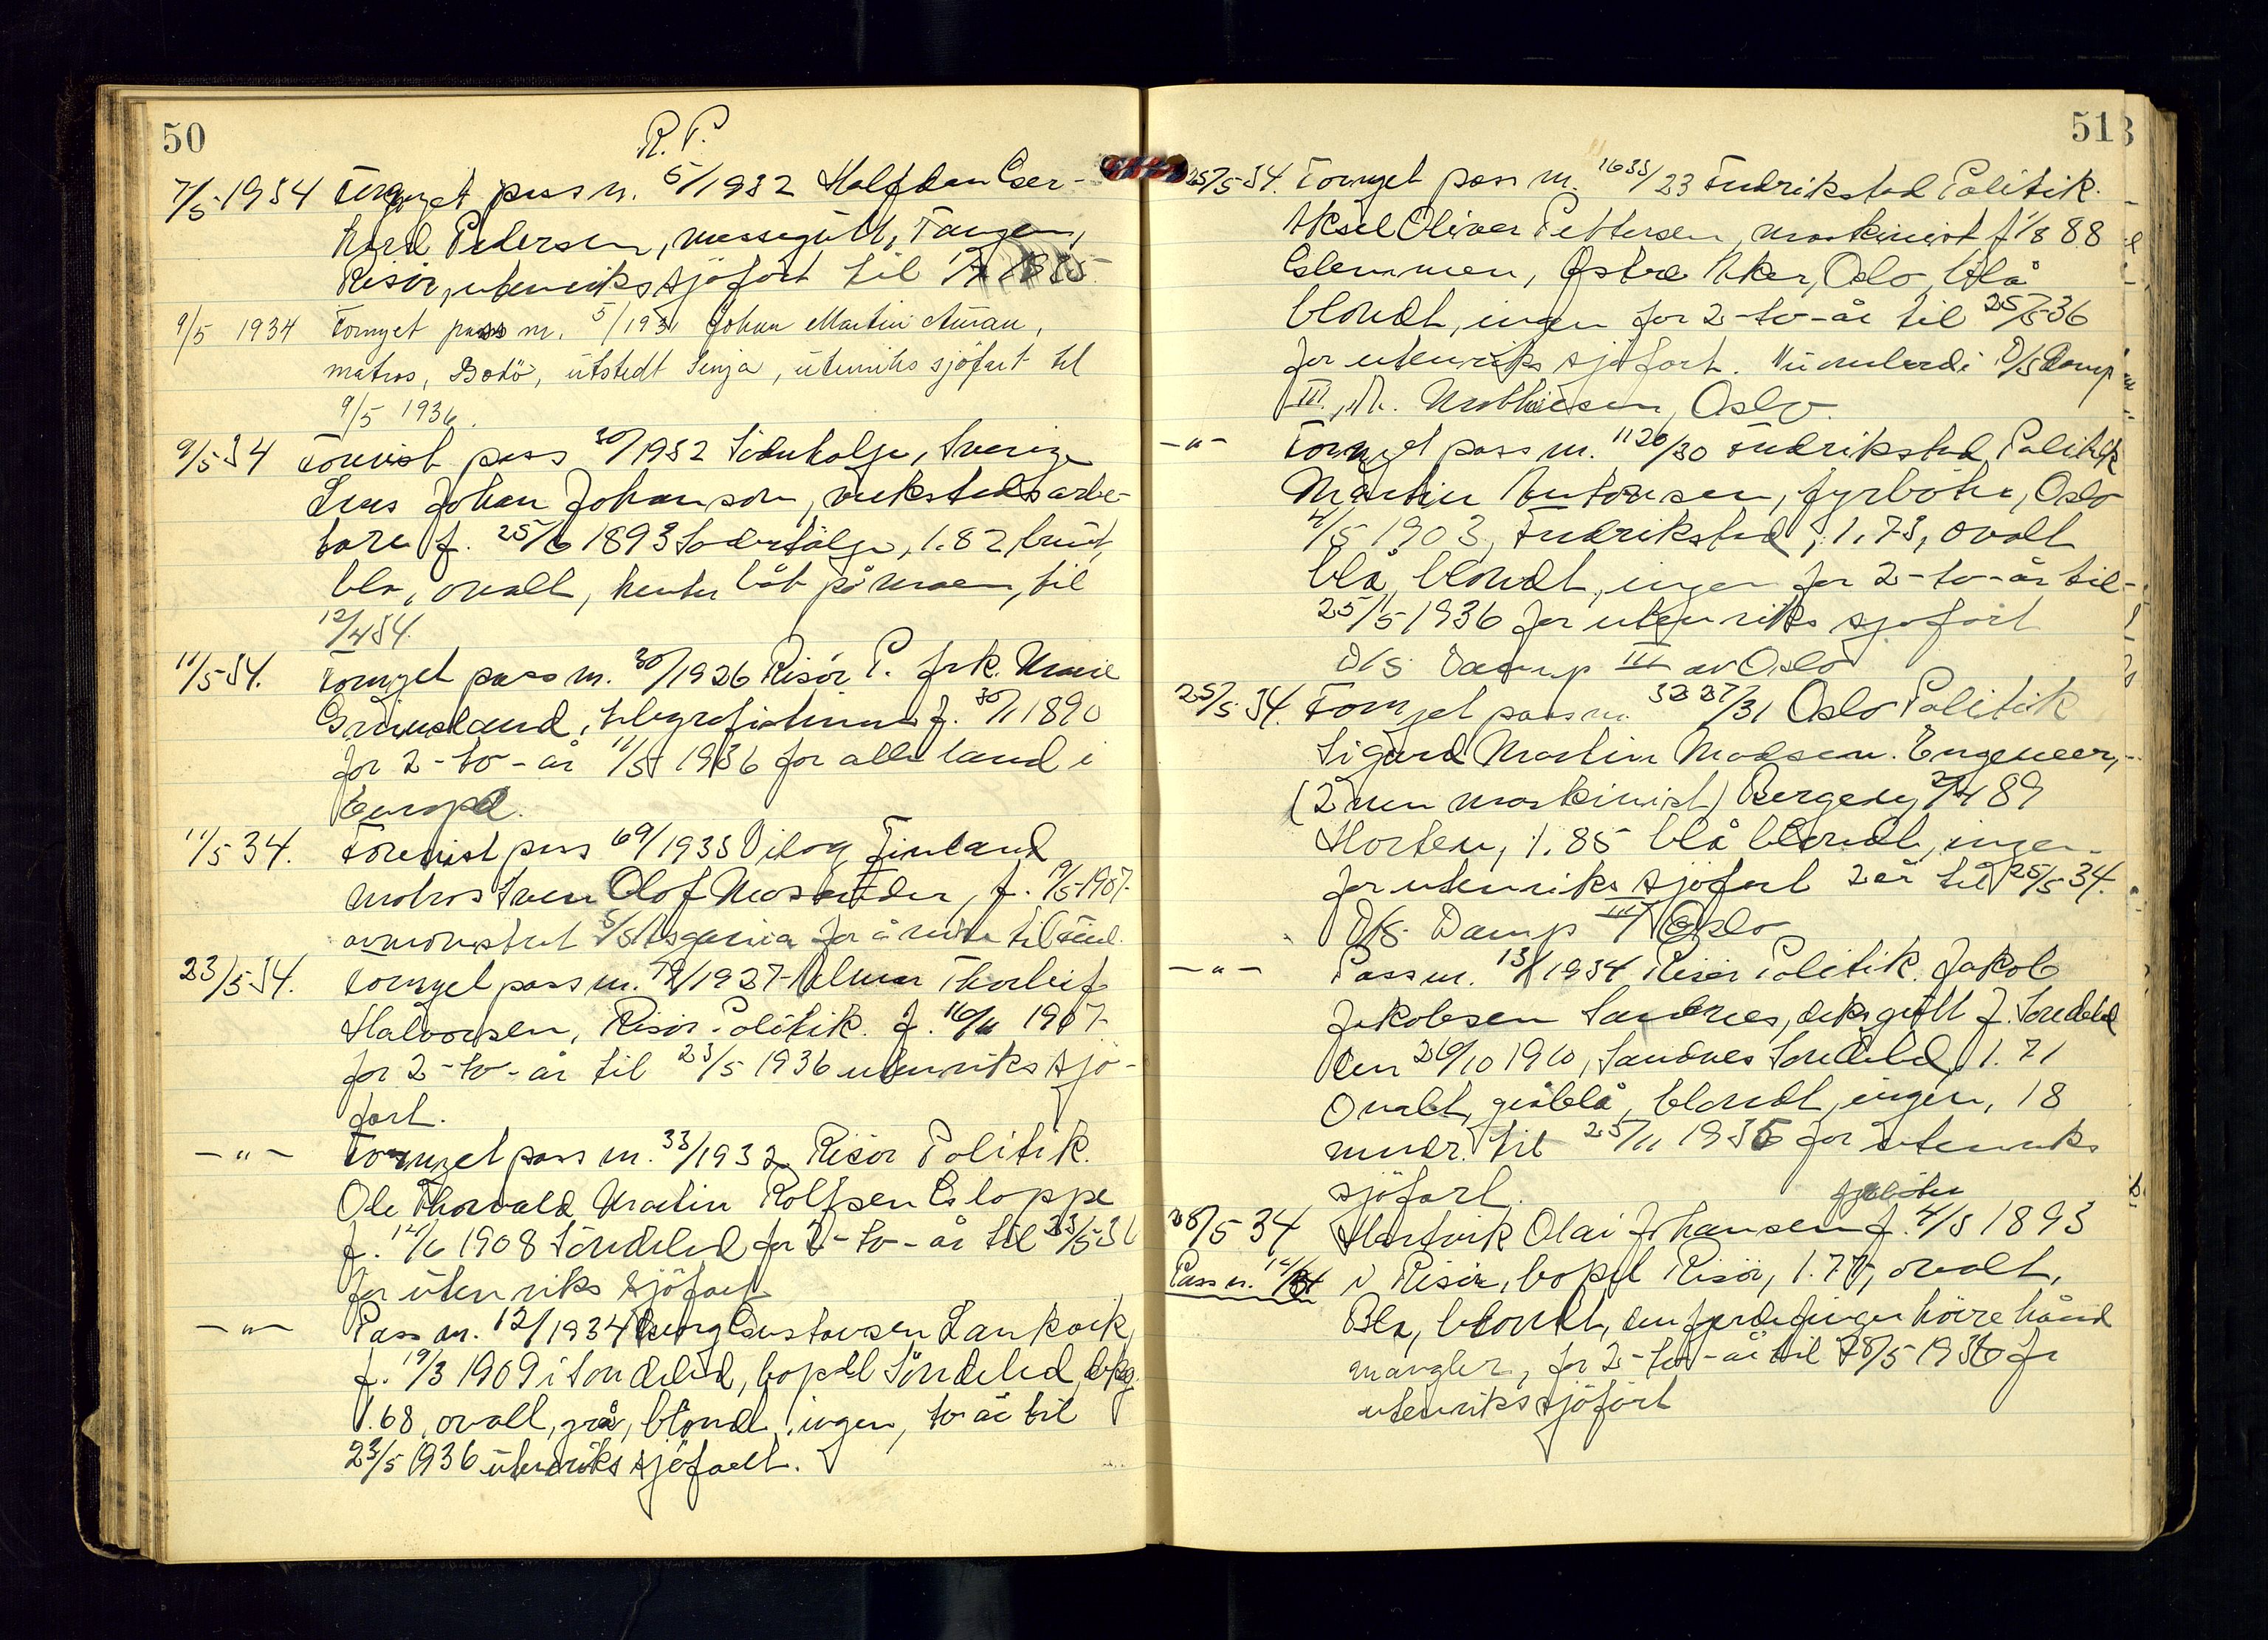 50
R. P.
7/5-1934 Fornyet pass nr. 5/1932 Halfdan Ger-
hard Pedersen, messegutt, Tangen,
Risör, utenriks sjöfart til
9/5 1934 Fornyet pass nr. 5/1931 Johan Martin Auran,
matros, Bodö, utstedt Senja, utenriks sjöfart til
9/5 1936.
9/5-34 Forevist pass 30/1932 Södertälje, Sverige
Johan Johanson, verkstadsarbe-
tare f. 25/6 1893 Södertälje, 1.82, brunt,
bla, ovalt, henter båt på Moen, til
12/4 34.
11/5-34. Fornyet pass nr. 30/1926 Risör P. frk.
Grimsland, telegrafistinne f. 30/1 1890
for 2-to-år 11/5 1936 for alle land i
Europa.
11/5 34. Forevist pass 69/1933 Finland
matros Sven Olof f. 9/5-1907.
avmönstret for å reise til
23/5-34. Fornyet pass nr. 1927 Thorleif
Halvorsen, Risör Politik. f. 16/11 1907
for 2-to-år til 23/5 1936 utenriks sjö-
fart.
-"- Fornyet pass nr. 33/1932 Risör Politik.
Ole Thorvald Martin Rolfsen Gloppe
f. 12/6 1908 Söndeled for 2-to-år til 23/5-36
for utenriks sjöfart
-"- Pass nr. 12/1934 Georg Gustavsen Lankvik
f. 19/3 1909 i Sondeled, bopel Söndeled,
1.68, ovalt, grå, blondt, ingen, to år til
23/5 1936 utenriks sjöfart.
51
25/5-34. Fornyet pass nr. 1633/23 Fredrikstad Politik.
Aksel Oliver Pettersen, maskinist f 1/8 88
Glemmen, Östre Aker, Oslo, blå
blondt, ingen for 2-to-år til 25/5-36
for utenriks sjöfart. D/S Damp
III, M. Mathiesen, Oslo.
-"- Fornyet pass nr. 1120/30 Fredrikstad Politik
Martin Antonsen, fyrböter, Oslo
4/5 1903, Fredrikstad, 1.73, ovalt
blå, blondt, ingen for 2-to-år til-
25/5 1936 for utenriks sjöfart
D/S Damp III av Oslo
25/5 34. Fornyet pass nr. 3237/31 Oslo Politik
Sigurd Martin Madsen. Engeneer,
(2nen maskinist) 89
Horten, 1.85 blå blondt, ingen
for utenriks sjöfart 2 år til 25/5 34.
D/S. Damp III Oslo
-"- Pass nr. 13/1934 Risör Politik. Jakob
Jakobsen Sandnes, deksgutt f. Söndeled
den 26/10 1910, Sandnes Söndeled, 1.71
Ovalt, gråblå, blondt, ingen, 18
mndr. til 25/11 1935 for utenriks
sjöfart.
fyrböter
28/5 34 Hartvik Olai Johansen f. 4/5 1893
Pass nr. 14/34 i Risör, bopel Risör, 1.77, ovalt,
Bla, blondt, den fjerde finger höire hånd
mangler, for 2-to-år til 28/5 1936 for
utenriks sjöfart